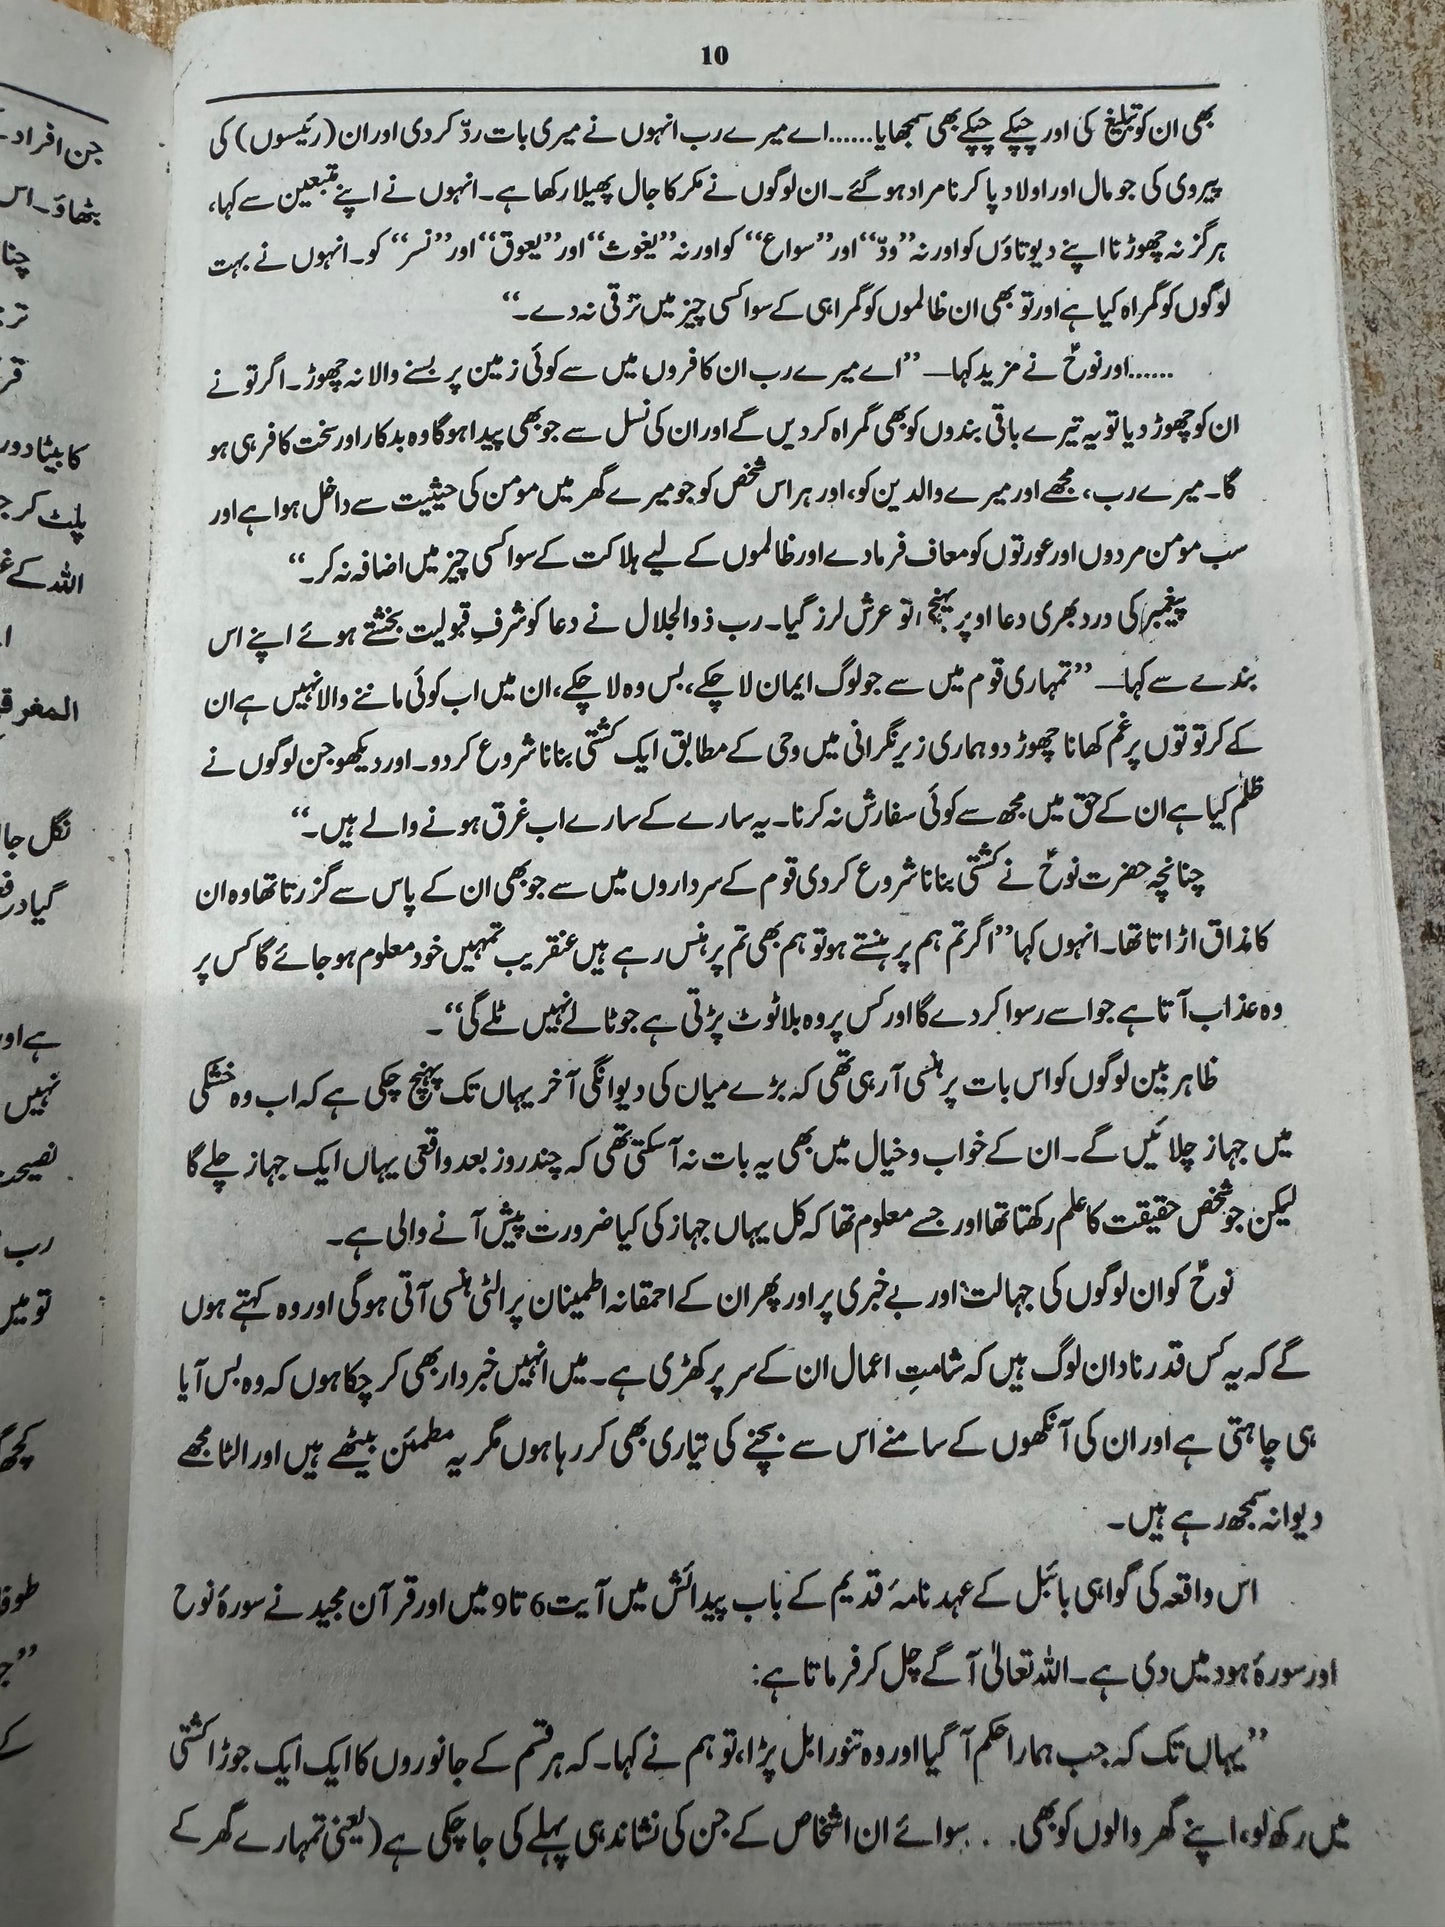 10
بھی ان کو تبلیغ کی اور چپکے چپکے بھی سمجھایا......اے میرے رب انہوں نے میری بات ردّ کر دی اور ان (رئیسوں) کی
پیروی کی جو مال اور اولاد پا کر نامراد ہو گئے۔ ان لوگوں نے مکر کا جال پھیلا رکھا ہے۔ انہوں نے اپنے متبعین سے کہا،
ہرگز نہ چھوڑنا اپنے دیوتاؤں کو اور نہ ”ودّ“ اور ”سواع“ کو اور نہ ”یغوث“ اور ”یعوق“ اور ”نسر“ کو۔ انہوں نے بہت
لوگوں کو گمراہ کیا ہے اور تو بھی ان ظالموں کو گمراہی کے سوا کسی چیز میں ترقی نہ دے۔“
......اور نوحؑ نے مزید کہا— ”اے میرے رب ان کافروں میں سے کوئی زمین پر بسنے والا نہ چھوڑ۔ اگر تو نے
ان کو چھوڑ دیا تو یہ تیرے باقی بندوں کو بھی گمراہ کر دیں گے اور ان کی نسل سے جو بھی پیدا ہو گا وہ بدکار اور سخت کافر ہی ہو
گا۔ میرے رب، مجھے اور میرے والدین کو، اور ہر اس شخص کو جو میرے گھر میں مومن کی حیثیت سے داخل ہوا ہے اور
سب مومن مردوں اور عورتوں کو معاف فرما دے اور ظالموں کے لیے ہلاکت کے سوا کسی چیز میں اضافہ نہ کر۔“
پیغمبر کی درد بھری دعا اوپر پہنچی، تو عرش لرز گیا۔ رب ذوالجلال نے دعا کو شرفِ قبولیت بخشتے ہوئے اپنے اس
بندے سے کہا— ”تمہاری قوم میں سے جو لوگ ایمان لا چکے، بس وہ لا چکے، ان میں اب کوئی ماننے والا نہیں ہے ان
کے کرتوتوں پر غم کھانا چھوڑ دو ہماری زیر نگرانی میں وحی کے مطابق ایک کشتی بنانا شروع کر دو۔ اور دیکھو جن لوگوں نے
ظلم کیا ہے ان کے حق میں مجھ سے کوئی سفارش نہ کرنا۔ یہ سارے کے سارے اب غرق ہونے والے ہیں۔“
چنانچہ حضرت نوحؑ نے کشتی بنانا شروع کر دی قوم کے سرداروں میں سے جو بھی ان کے پاس سے گزرتا تھا وہ ان
کا مذاق اڑاتا تھا۔ انہوں کہا ”اگر تم ہم پر ہنستے ہو تو ہم بھی تم پر ہنس رہے ہیں عنقریب تمہیں خود معلوم ہو جائے گا کس پر
وہ عذاب آتا ہے جو اسے رسوا کر دے گا اور کس پر وہ بلا ٹوٹ پڑتی ہے جو ٹالے نہیں ٹلے گی“۔
ظاہر بین لوگوں کو اس بات پر ہنسی آ رہی تھی کہ بڑے میاں کی دیوانگی آخر یہاں تک پہنچ چکی ہے کہ اب وہ خشکی
میں جہاز چلائیں گے۔ ان کے خواب و خیال میں بھی یہ بات نہ آ سکتی تھی کہ چند روز بعد واقعی یہاں ایک جہاز چلے گا
لیکن جو شخص حقیقت کا علم رکھتا تھا اور جسے معلوم تھا کہ کل یہاں جہاز کی کیا ضرورت پیش آنے والی ہے۔
نوحؑ کو ان لوگوں کی جہالت اور بے خبری پر اور پھر ان کے احمقانہ اطمینان پر الٹی ہنسی آتی ہو گی اور وہ کہتے ہوں
گے کہ یہ کس قدر نادان لوگ ہیں کہ شامتِ اعمال ان کے سر پر کھڑی ہے۔ میں انہیں خبردار بھی کر چکا ہوں کہ وہ بس آیا
ہی چاہتی ہے اور ان کی آنکھوں کے سامنے اس سے بچنے کی تیاری بھی کر رہا ہوں مگر یہ مطمئن بیٹھے ہیں اور الٹا مجھے
دیوانہ سمجھ رہے ہیں۔
اس واقعہ کی گواہی بائبل کے عہد نامۂ قدیم کے باب پیدائش میں آیت 6 تا 9 میں اور قرآن مجید نے سورۂ نوح
اور سورۂ ہود میں دی ہے۔ اللہ تعالیٰ آگے چل کر فرماتا ہے:
”یہاں تک کہ جب ہمارا حکم آ گیا اور وہ تنور ابل پڑا، تو ہم نے کہا۔ کہ ہر قسم کے جانوروں کا ایک ایک جوڑا کشتی
میں رکھ لو، اپنے گھر والوں کو بھی. . .سوائے ان اشخاص کے جن کی نشاندہی پہلے کی جا چکی ہے (یعنی تمہارے گھر کے
جن افراد
بٹھاؤ۔ اس
کا بیٹا دور
پلٹ کر
اللہ کے
نگل
گیا
نہیں
رب
تو میں
کے